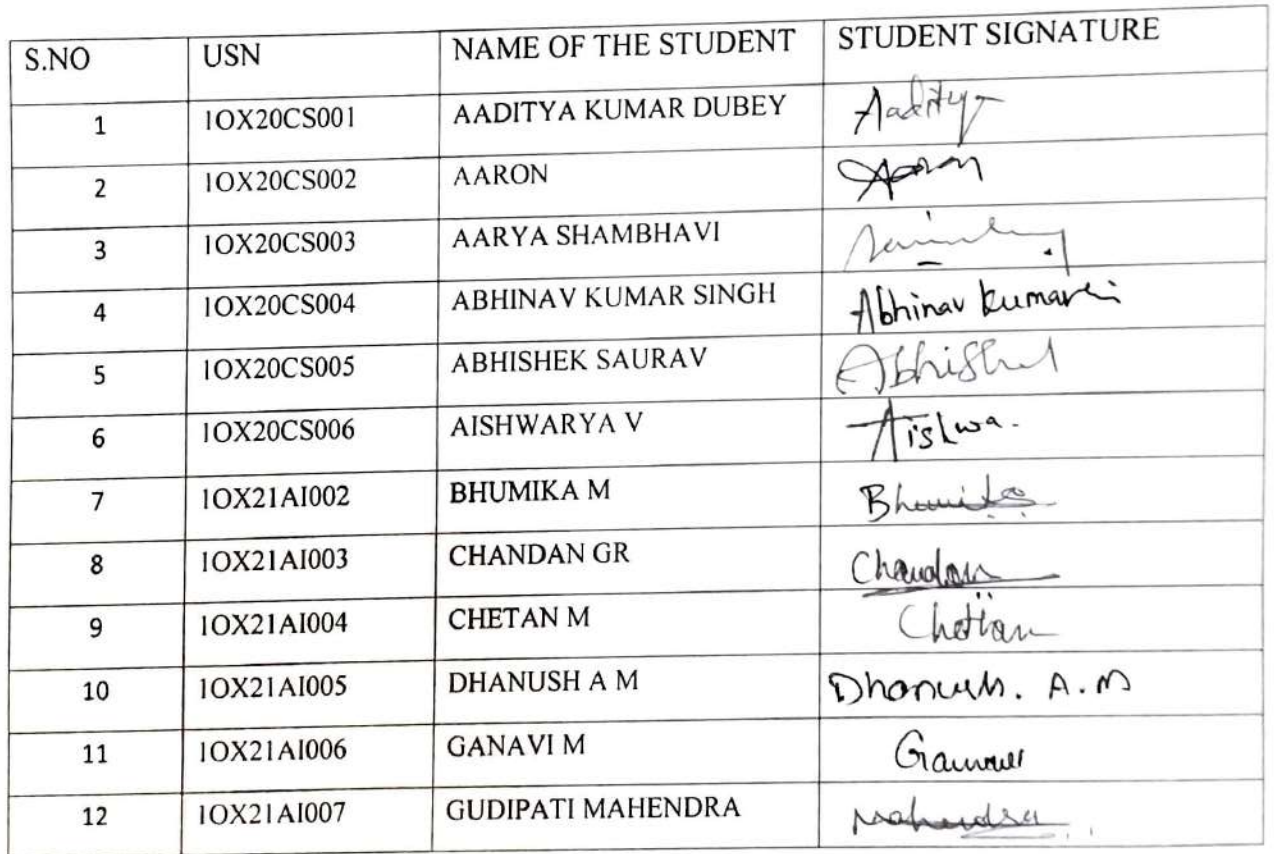 S.NO USN NAME OF THE STUDENT STUDENT SIGNATURE
1 1OX20CS001 AADITYA KUMAR DUBEY Aaditya
2 1OX20CS002 AARON Aaron
3 1OX20CS003 AARYA SHAMBHAVI
4 1OX20CS004 ABHINAV KUMAR SINGH Abhinav Kumar
5 1OX20CS005 ABHISHEK SAURAV Abhishek
6 1OX20CS006 AISHWARYA V Aishwa.
7 1OX21AI002 BHUMIKA M Bhumika
8 1OX21AI003 CHANDAN GR Chandan
9 1OX21AI004 CHETAN M Chethan
10 1OX21AI005 DHANUSH A M Dhanush. A.M
11 1OX21AI006 GANAVI M Ganavi
12 1OX21AI007 GUDIPATI MAHENDRA Mahendra